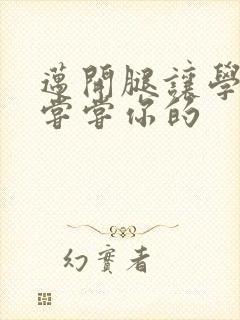 邁開腿讓學
嘗嘗你的
幻實者